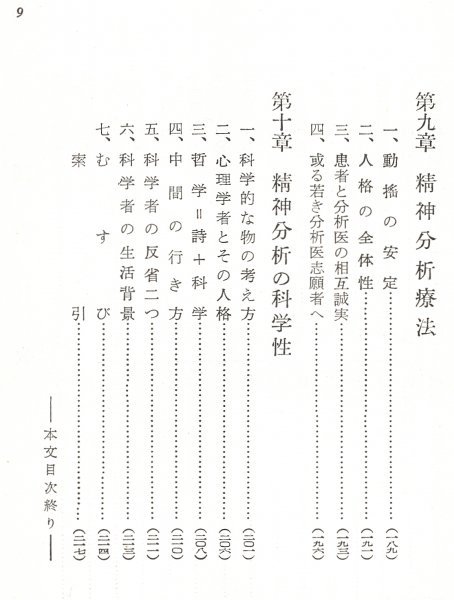 9
第九章 精神分析療法
一、動搖の安定……………(一八九)
二、人格の全体性……………(一九一)
三、患者と分析医の相互誠実……………(一九三)
四、或る若き分析医志願者へ……………(一九六)
第十章 精神分析の科学性
一、科学的な物の考え方……………(二〇一)
二、心理学者とその人格……………(二〇六)
三、哲学=詩+科学……………(二〇八)
四、中間の行き方……………(二一〇)
五、科学者の反省二つ……………(二一一)
六、科学者の生活背景……………(二一三)
七、むすび……………(二一四)
索引……………(二一七)
――本文目次終り――